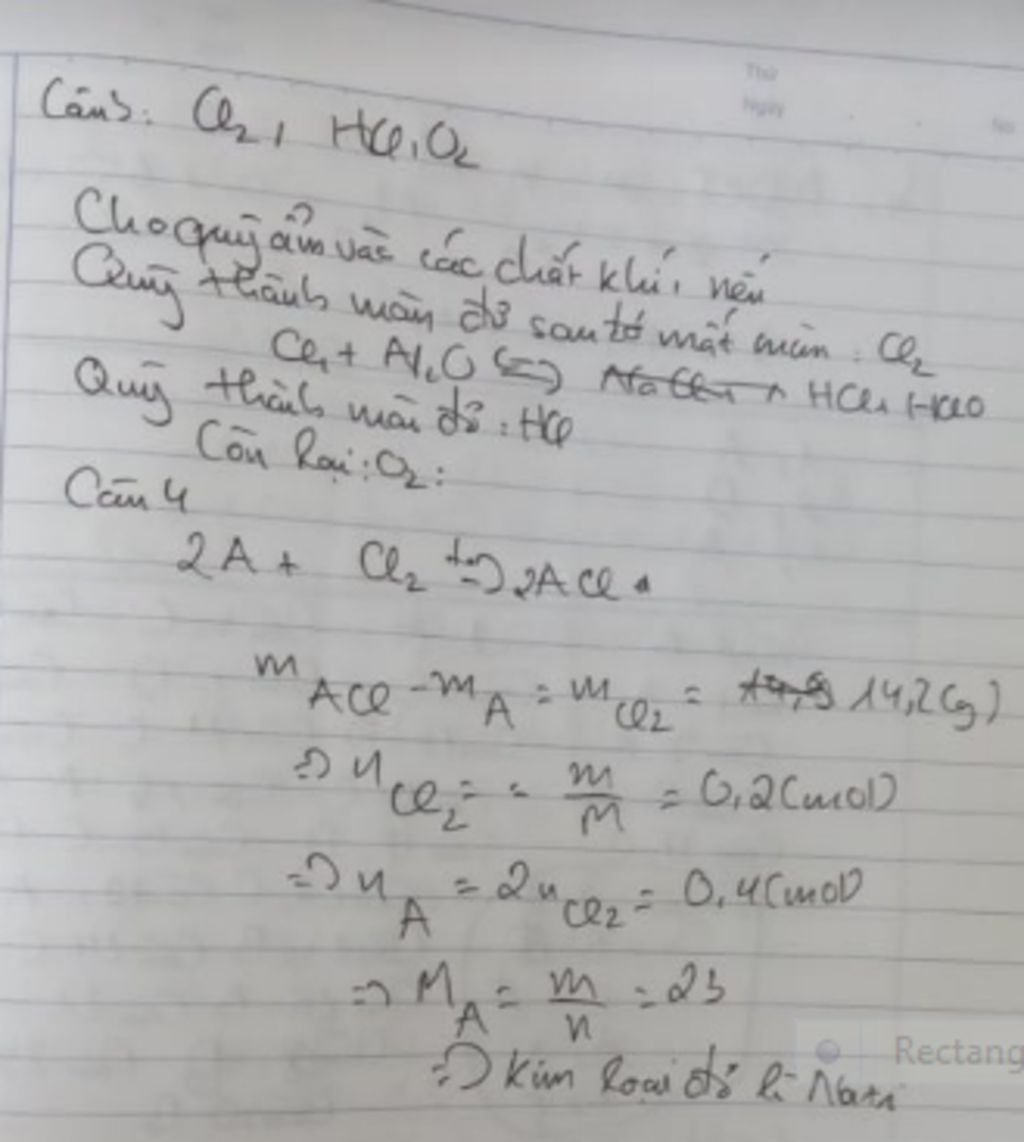 Thứ
Ngày
No
Câu 3: Cl₂, HCl, O₂
Cho quỳ ẩm vào các chất khí, nếu
Quỳ thành màu đỏ sau đó mất màu: Cl₂
Cl₂ + H₂O ⇌ HCl + HClO
Quỳ thành màu đỏ: HCl
Còn lại: O₂:
Câu 4
2A + Cl₂ t°→ 2ACl
m ACl - m A = m Cl₂ = 14,2(g)
=> n Cl₂ = - m/M = 0,2(mol)
=> n A = 2n Cl₂ = 0,4(mol)
=> M A = m/n = 23
=> Kim loại đó là Natri
Rectang